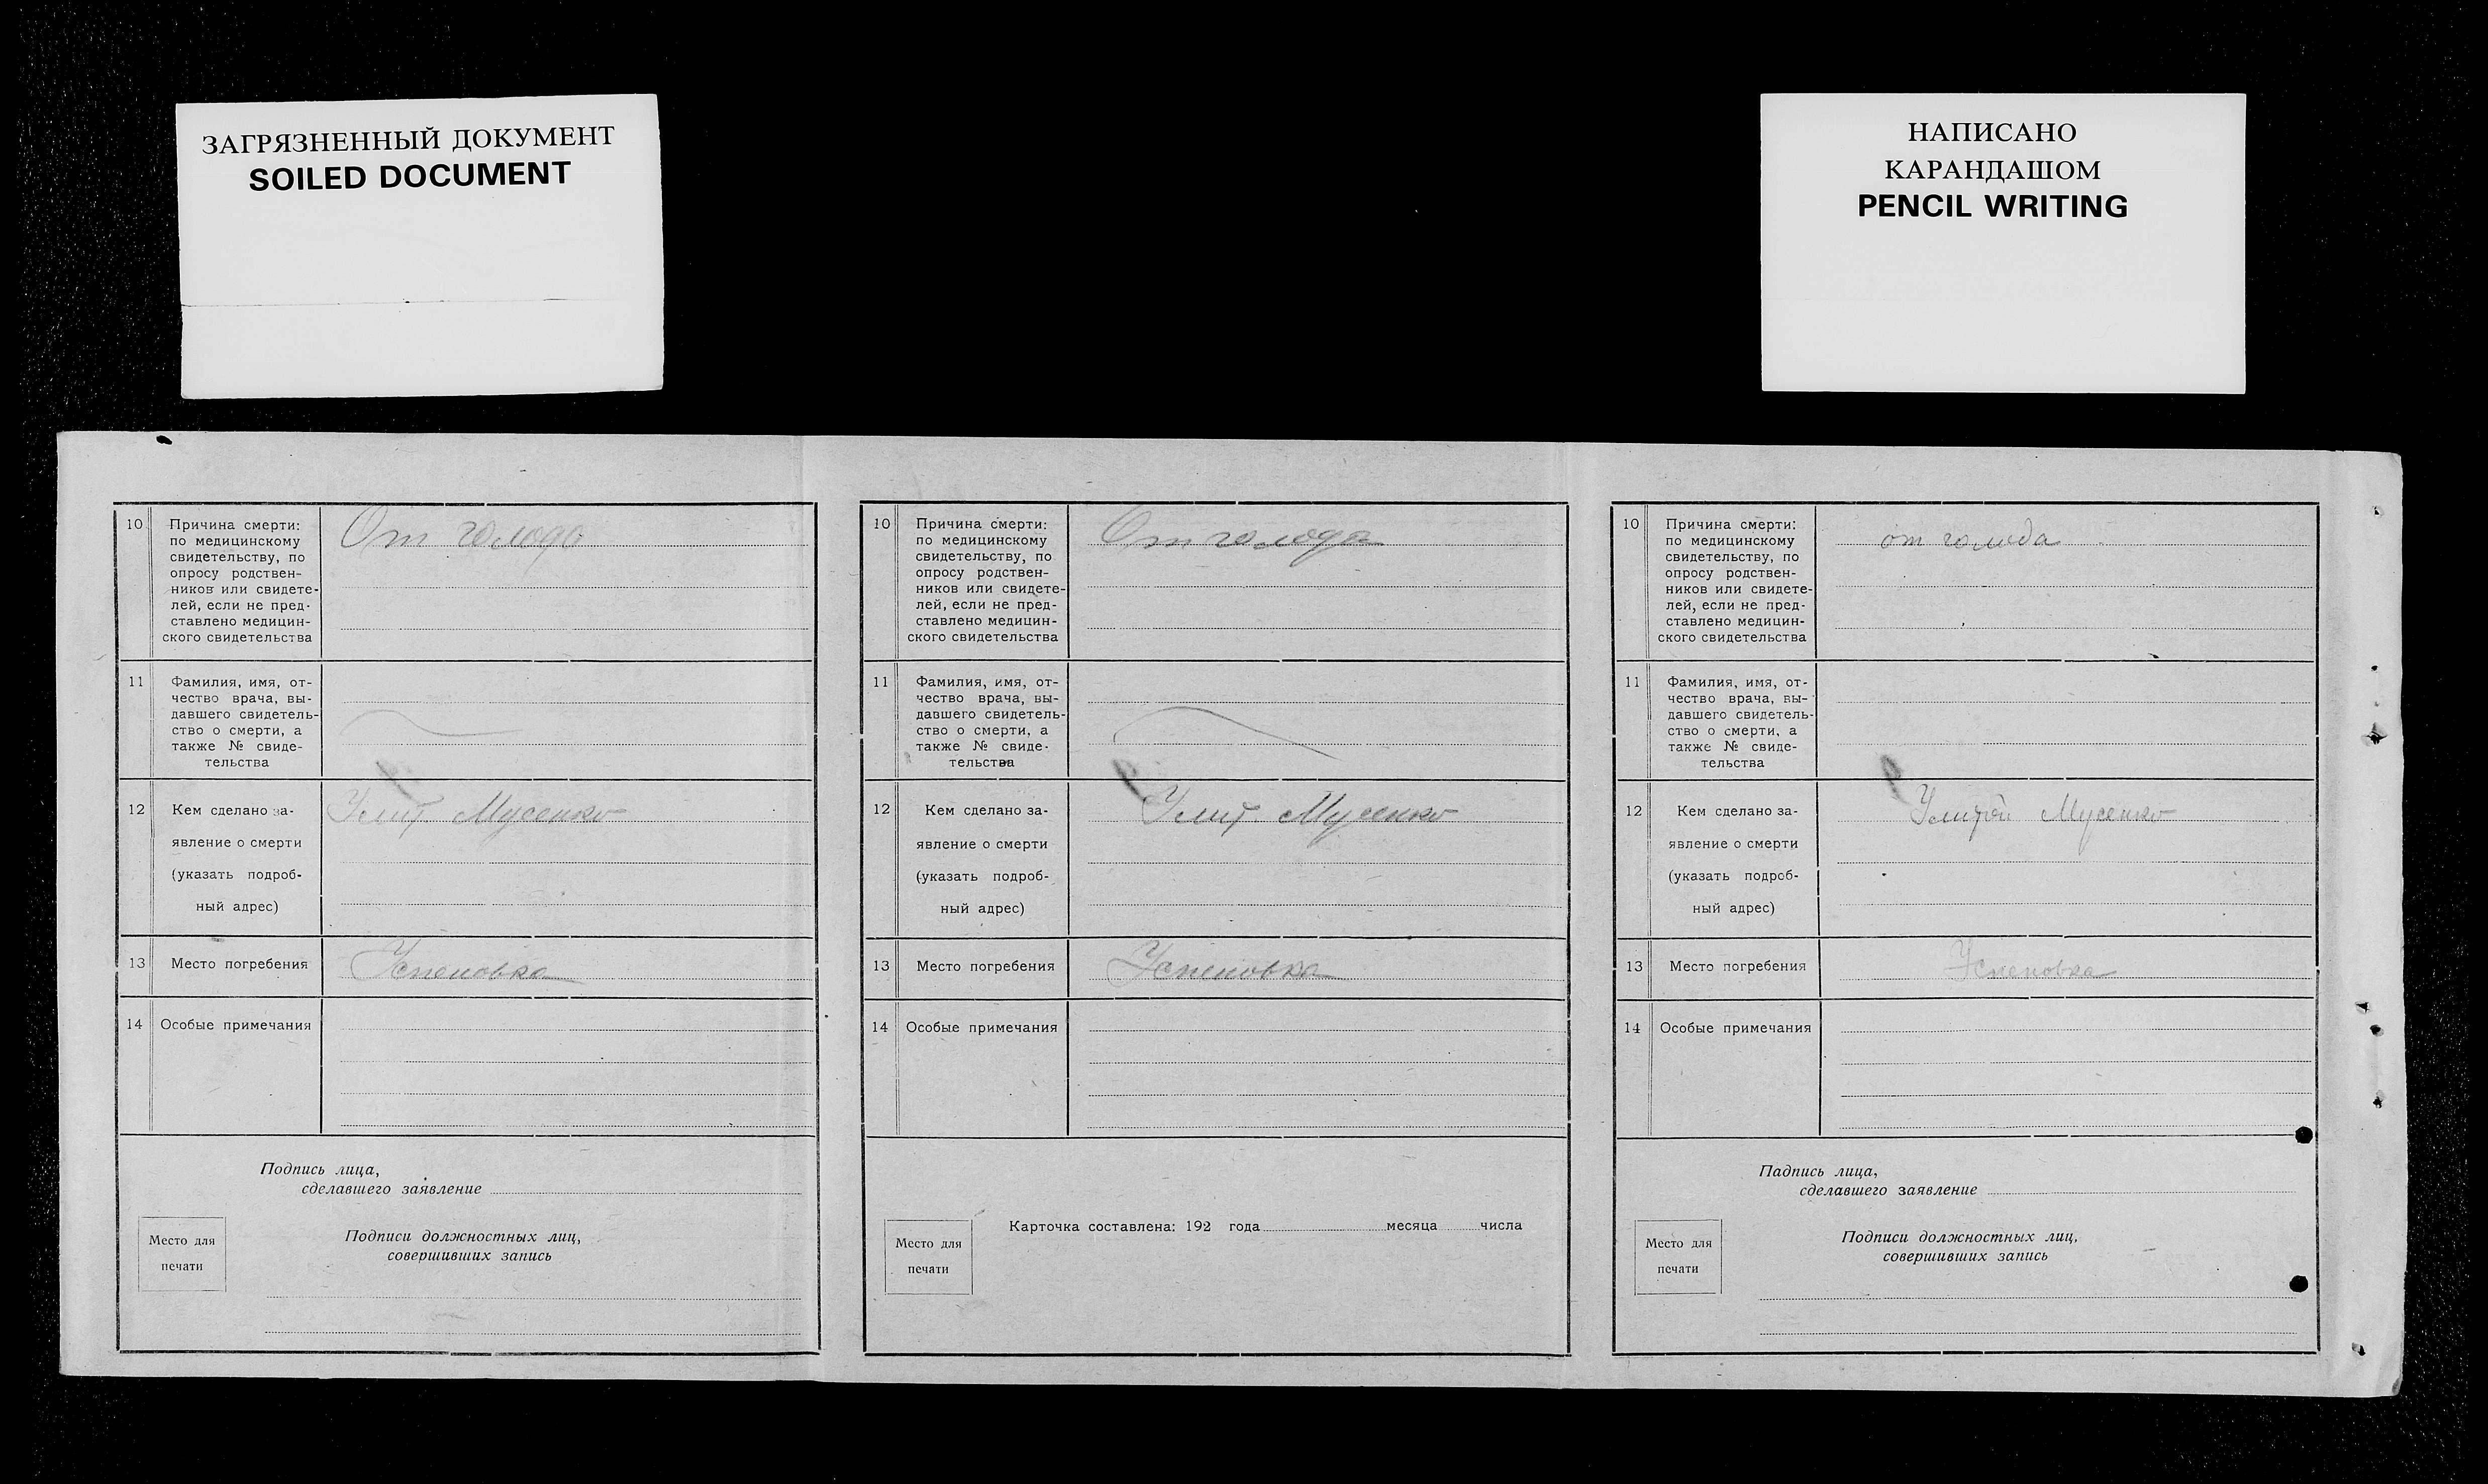 ЗАГРЯЗНЕННЫЙ ДОКУМЕНТ
SOILED DOCUMENT
НАПИСАНО
КАРАНДАШОМ
PENCIL WRITING
10
Причина смерти:
по медицинскому
свидетельству, по
опросу родствен-
ников или свидете-
лей, если не пред-
ставлено медицин-
ского свидетельства
От голода
11
Фамилия, имя, от-
чество врача, вы-
давшего свидетель-
ство о смерти, а
также № свиде-
тельства
12
Кем сделано за-
явление о смерти
(указать подроб-
ный адрес)
Мусенко
13
Место погребения
Успеновка
14
Особые примечания
Подпись лица,
сделавшего заявление
Место для
печати
Подписи должностных лиц,
совершивших запись
10
Причина смерти:
по медицинскому
свидетельству, по
опросу родствен-
ников или свидете-
лей, если не пред-
ставлено медицин-
ского свидетельства
От голода
11
Фамилия, имя, от-
чество врача, вы-
давшего свидетель-
ство о смерти, а
также № свиде-
тельства
12
Кем сделано за-
явление о смерти
(указать подроб-
ный адрес)
Мусенко
13
Место погребения
Успеновка
14
Особые примечания
Карточка составлена: 192 года месяца числа
Место для
печати
10
Причина смерти:
по медицинскому
свидетельству, по
опросу родствен-
ников или свидете-
лей, если не пред-
ставлено медицин-
ского свидетельства
от голода
11
Фамилия, имя, от-
чество врача, вы-
давшего свидетель-
ство о смерти, а
также № свиде-
тельства
12
Кем сделано за-
явление о смерти
(указать подроб-
ный адрес)
Мусенко
13
Место погребения
Успеновка
14
Особые примечания
Падпись лица,
сделавшего заявление
Место для
печати
Подписи должностных лиц,
совершивших запись